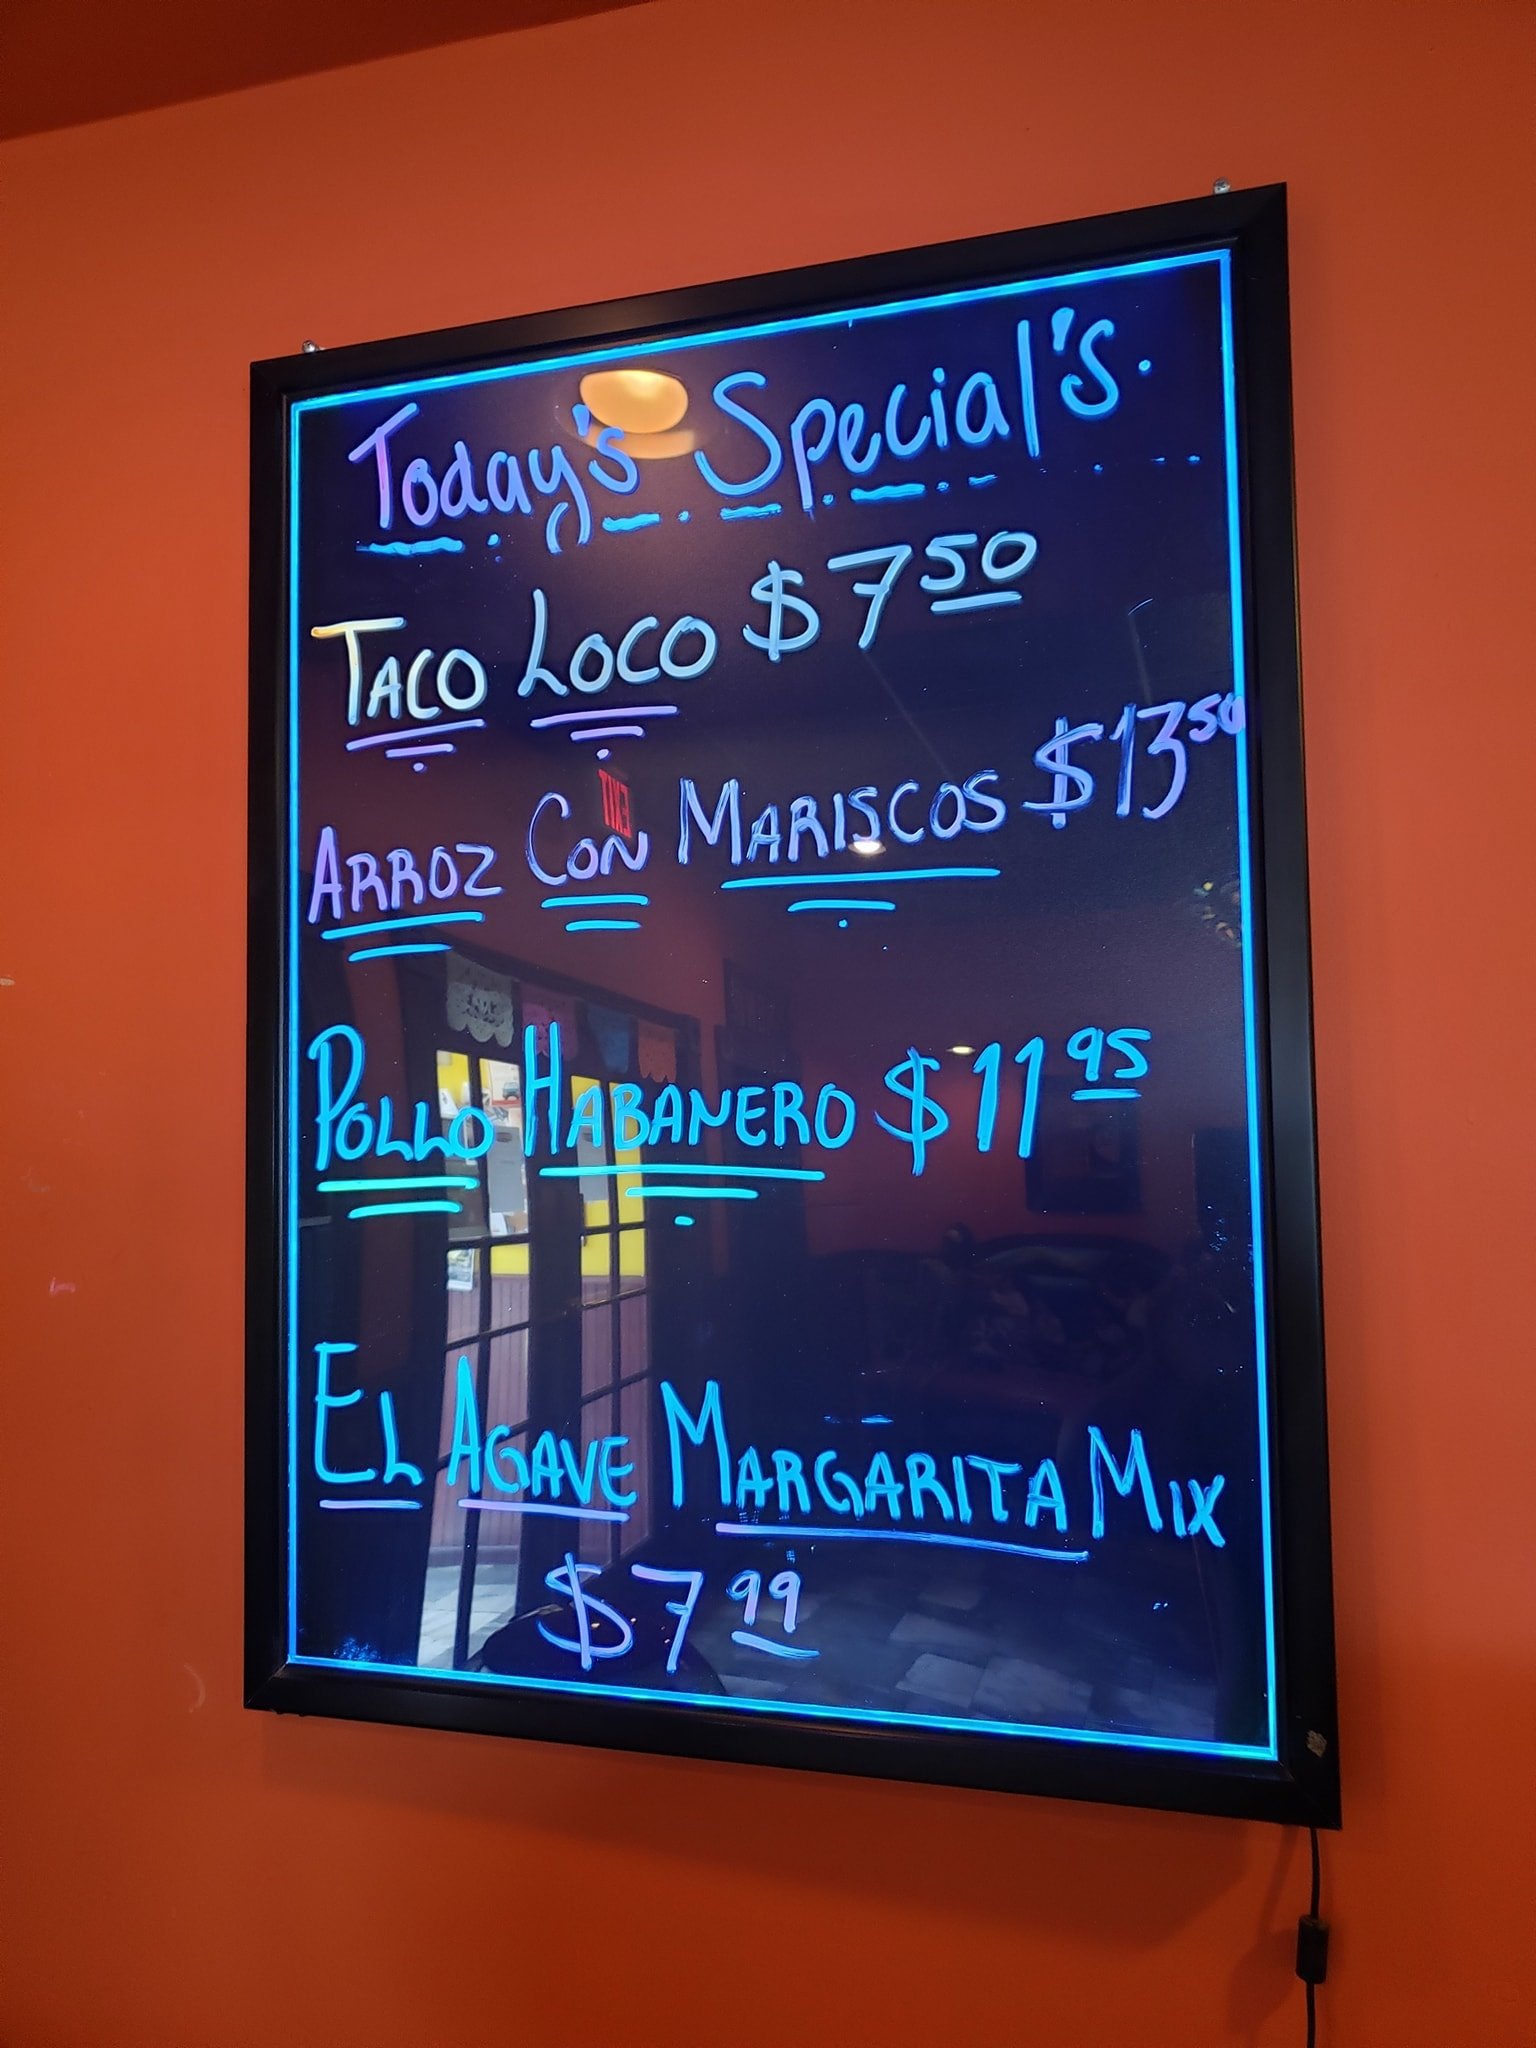 Today's Special's.
TACO LOCO $7 50
ARROZ CON MARISCOS $13 50
EXIT
POLLO HABANERO $11 95
EL AGAVE MARGARITA MIX
$7 99